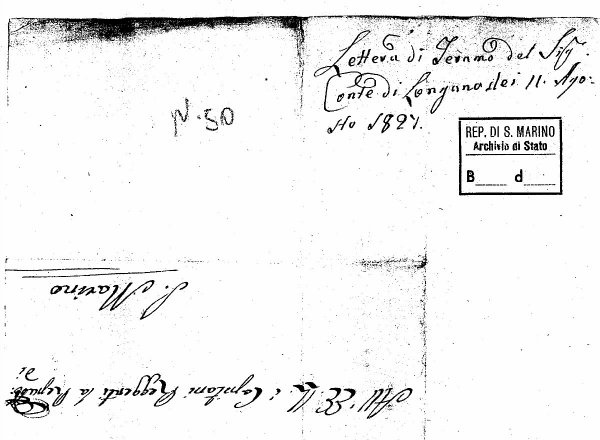 Lettera di Teramo del Sig.
Conte di Longano dei 11. Ago=
sto 1827.
N. 50
REP. DI S. MARINO
Archivio di Stato
B____ d____
All' EE. LL. i Capitani Reggenti la Repub:
di
S. Marino